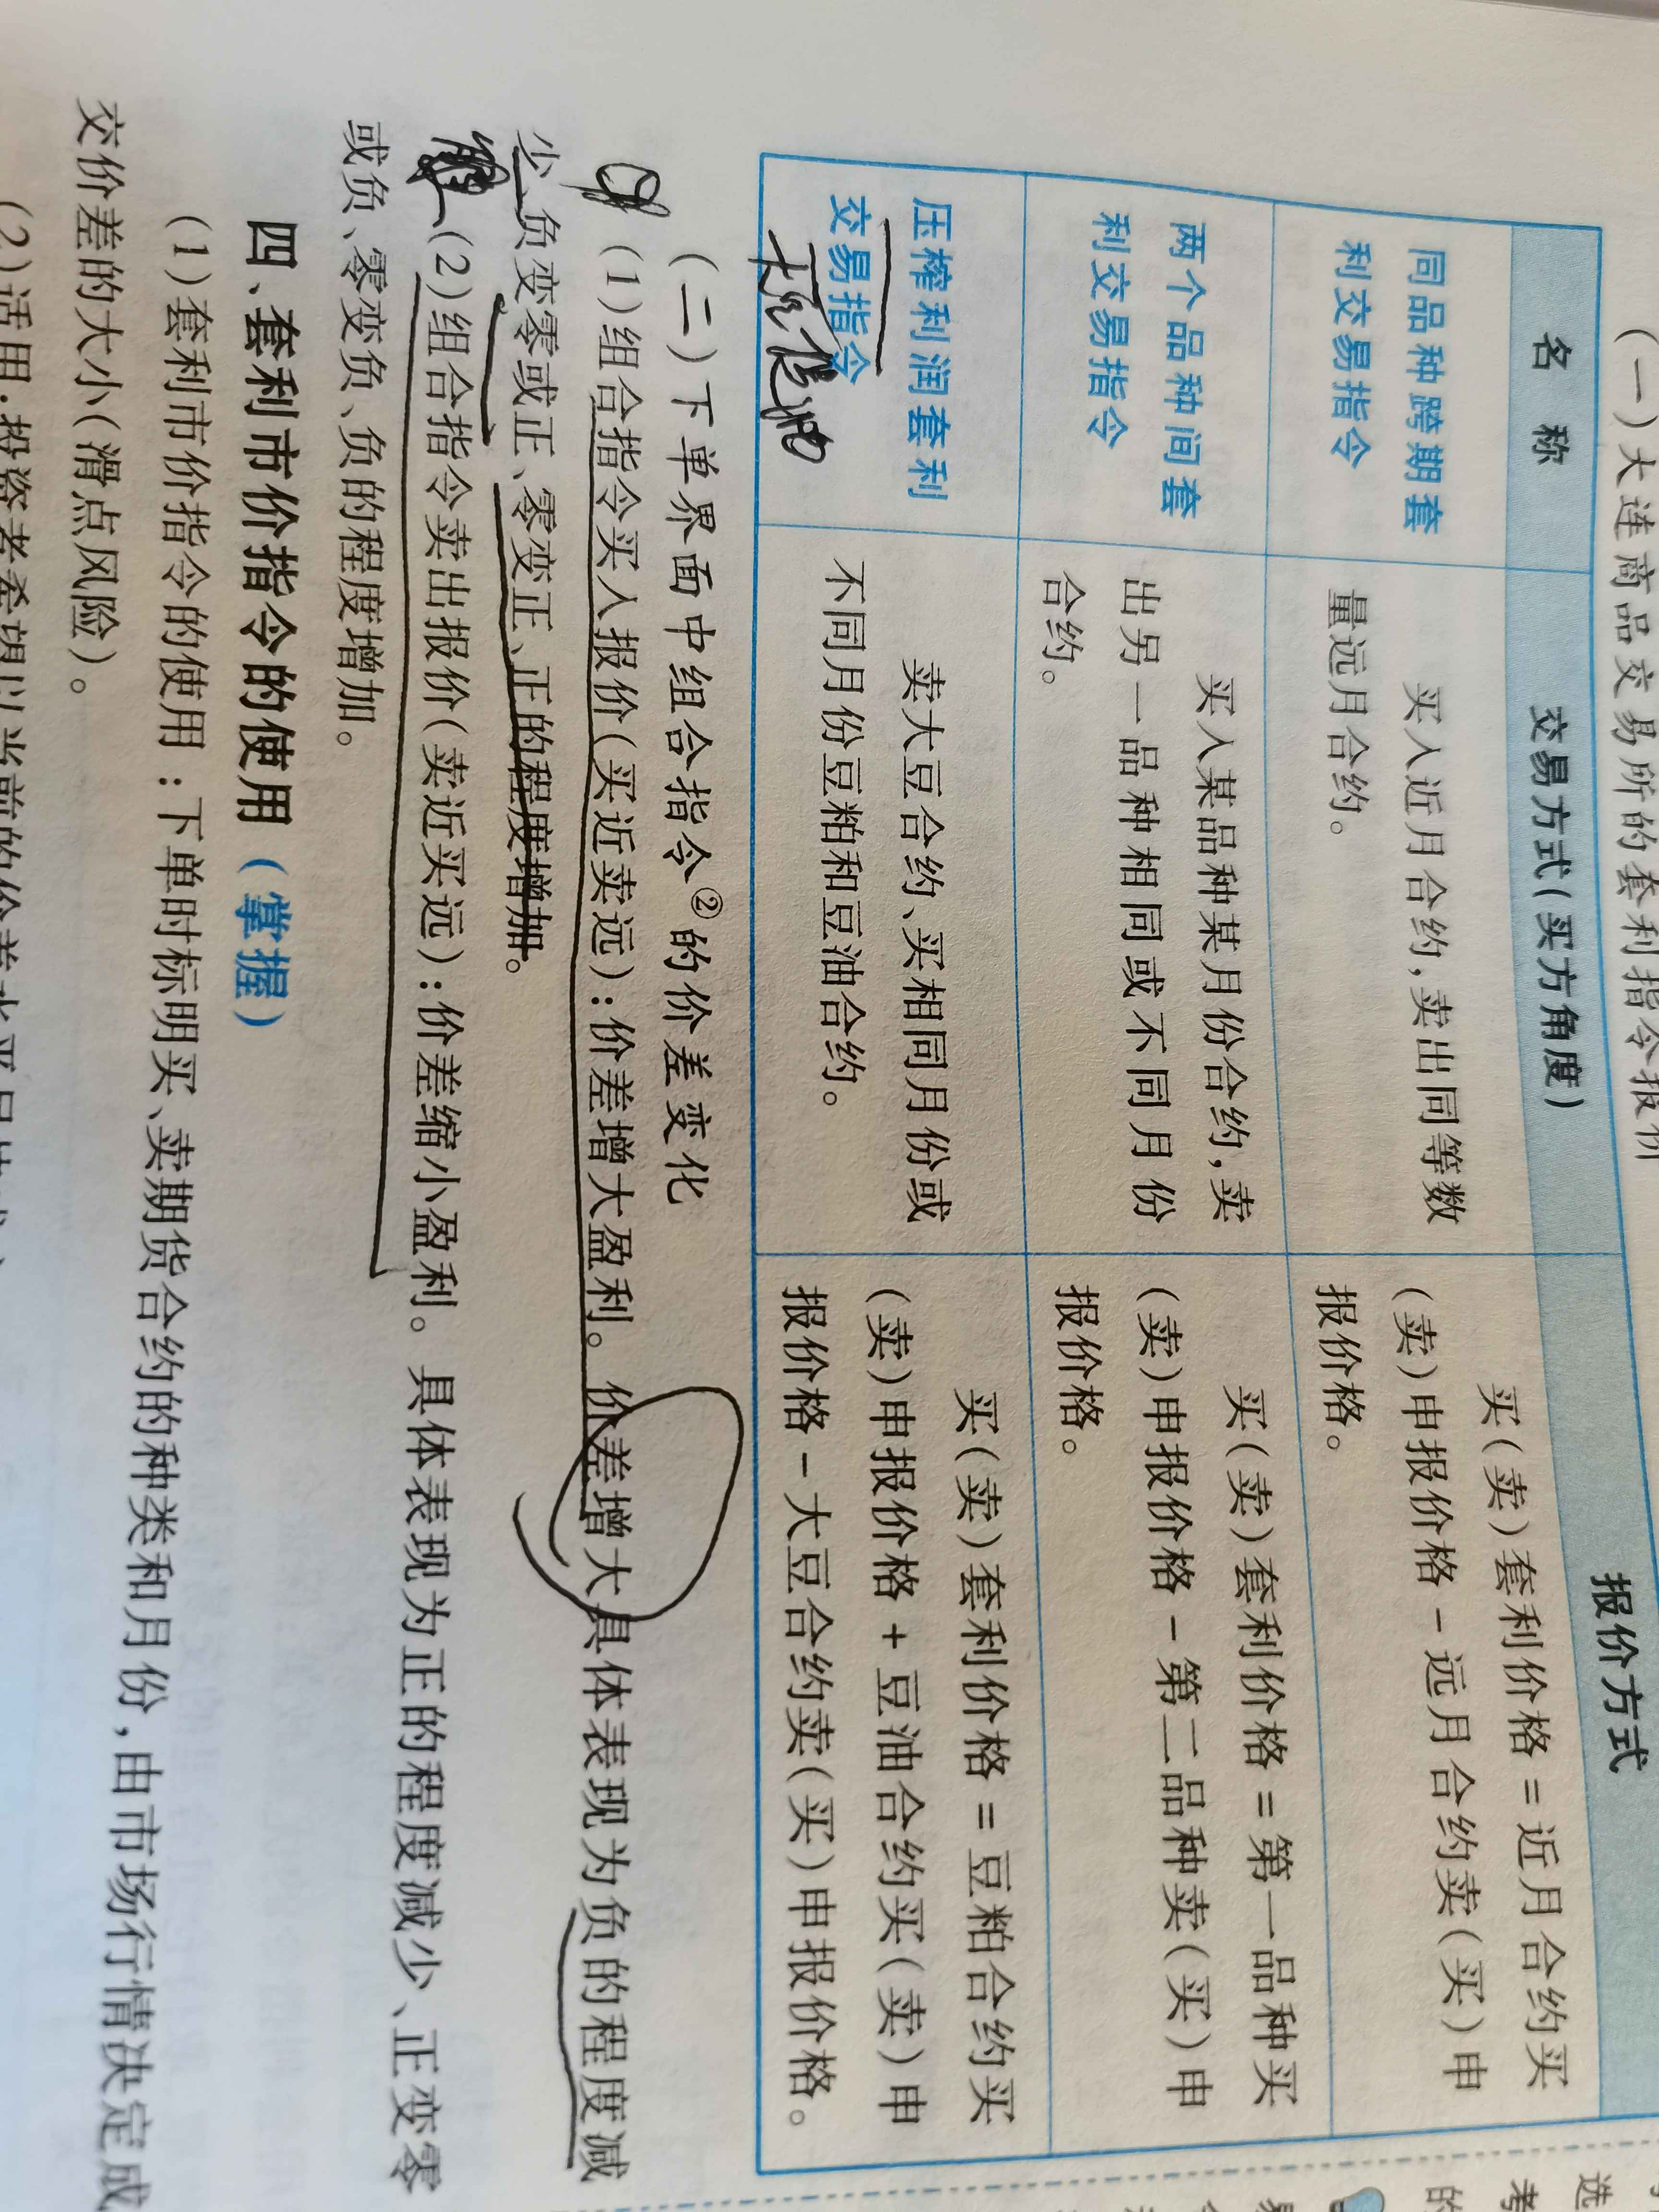 (一)大连商品交易所的套利指令报价
名 称 交易方式(买方角度) 报价方式
同品种跨期套
利交易指令
买入近月合约,卖出同等数
量远月合约。
买(卖)套利价格=近月合约买
(卖)申报价格-远月合约卖(买)申
报价格。
两个品种间套
利交易指令
买入某品种某月份合约,卖
出另一品种相同或不同月份
合约。
买(卖)套利价格=第一品种买
(卖)申报价格-第二品种卖(买)申
报价格。
压榨利润套利
交易指令
卖大豆合约、买相同月份或
不同月份豆粕和豆油合约。
买(卖)套利价格=豆粕合约买
(卖)申报价格+豆油合约买(卖)申
报价格-大豆合约卖(买)申报价格。
(二)下单界面中组合指令②的价差变化
(1)组合指令买入报价(买近卖远):价差增大盈利。价差增大具体表现为负的程度减
少、负变零或正、零变正、正的程度增加。
(2)组合指令卖出报价(卖近买远):价差缩小盈利。具体表现为正的程度减少、正变零
或负、零变负、负的程度增加。
四、套利市价指令的使用(掌握)
(1)套利市价指令的使用:下单时标明买、卖期货合约的种类和月份,由市场行情决定成
交价差的大小(滑点风险)。
(2)适用:投资者希望以当前的价差水平
选
考
的